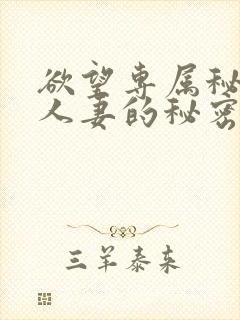 欲望专属秘
人妻的秘密
三羊泰来